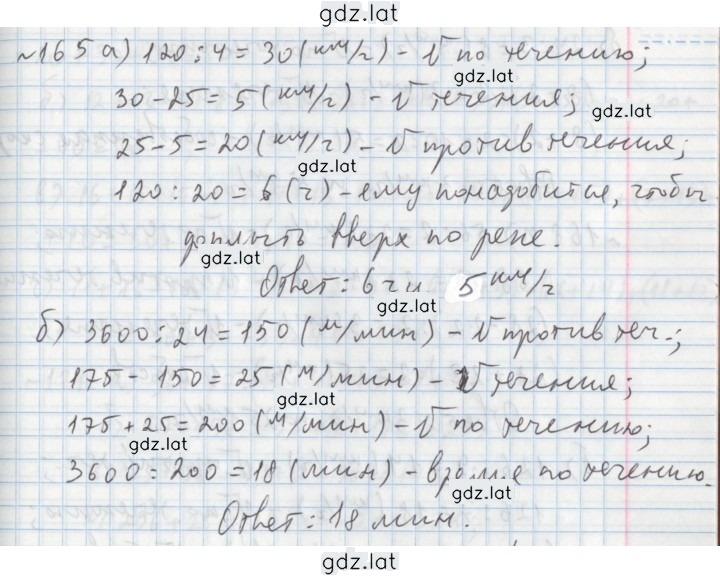 gdz.lat
№165 а) 120:4=30(км/г) - V по течению;
gdz.lat
30-25=5(км/г) - V течения;
gdz.lat
25-5=20(км/г) - V против течения;
gdz.lat
120:20=6(г) - ему понадобится, чтобы
доплыть вверх по реке.
gdz.lat
Ответ: 6 г и 5 км/г
gdz.lat
б) 3600:24=150(м/мин) - V против теч.;
gdz.lat
175-150=25(м/мин) - V течения;
gdz.lat
175+25=200(м/мин) - V по течению;
gdz.lat
3600:200=18(мин) - время по течению.
gdz.lat
Ответ: 18 мин.
gdz.lat